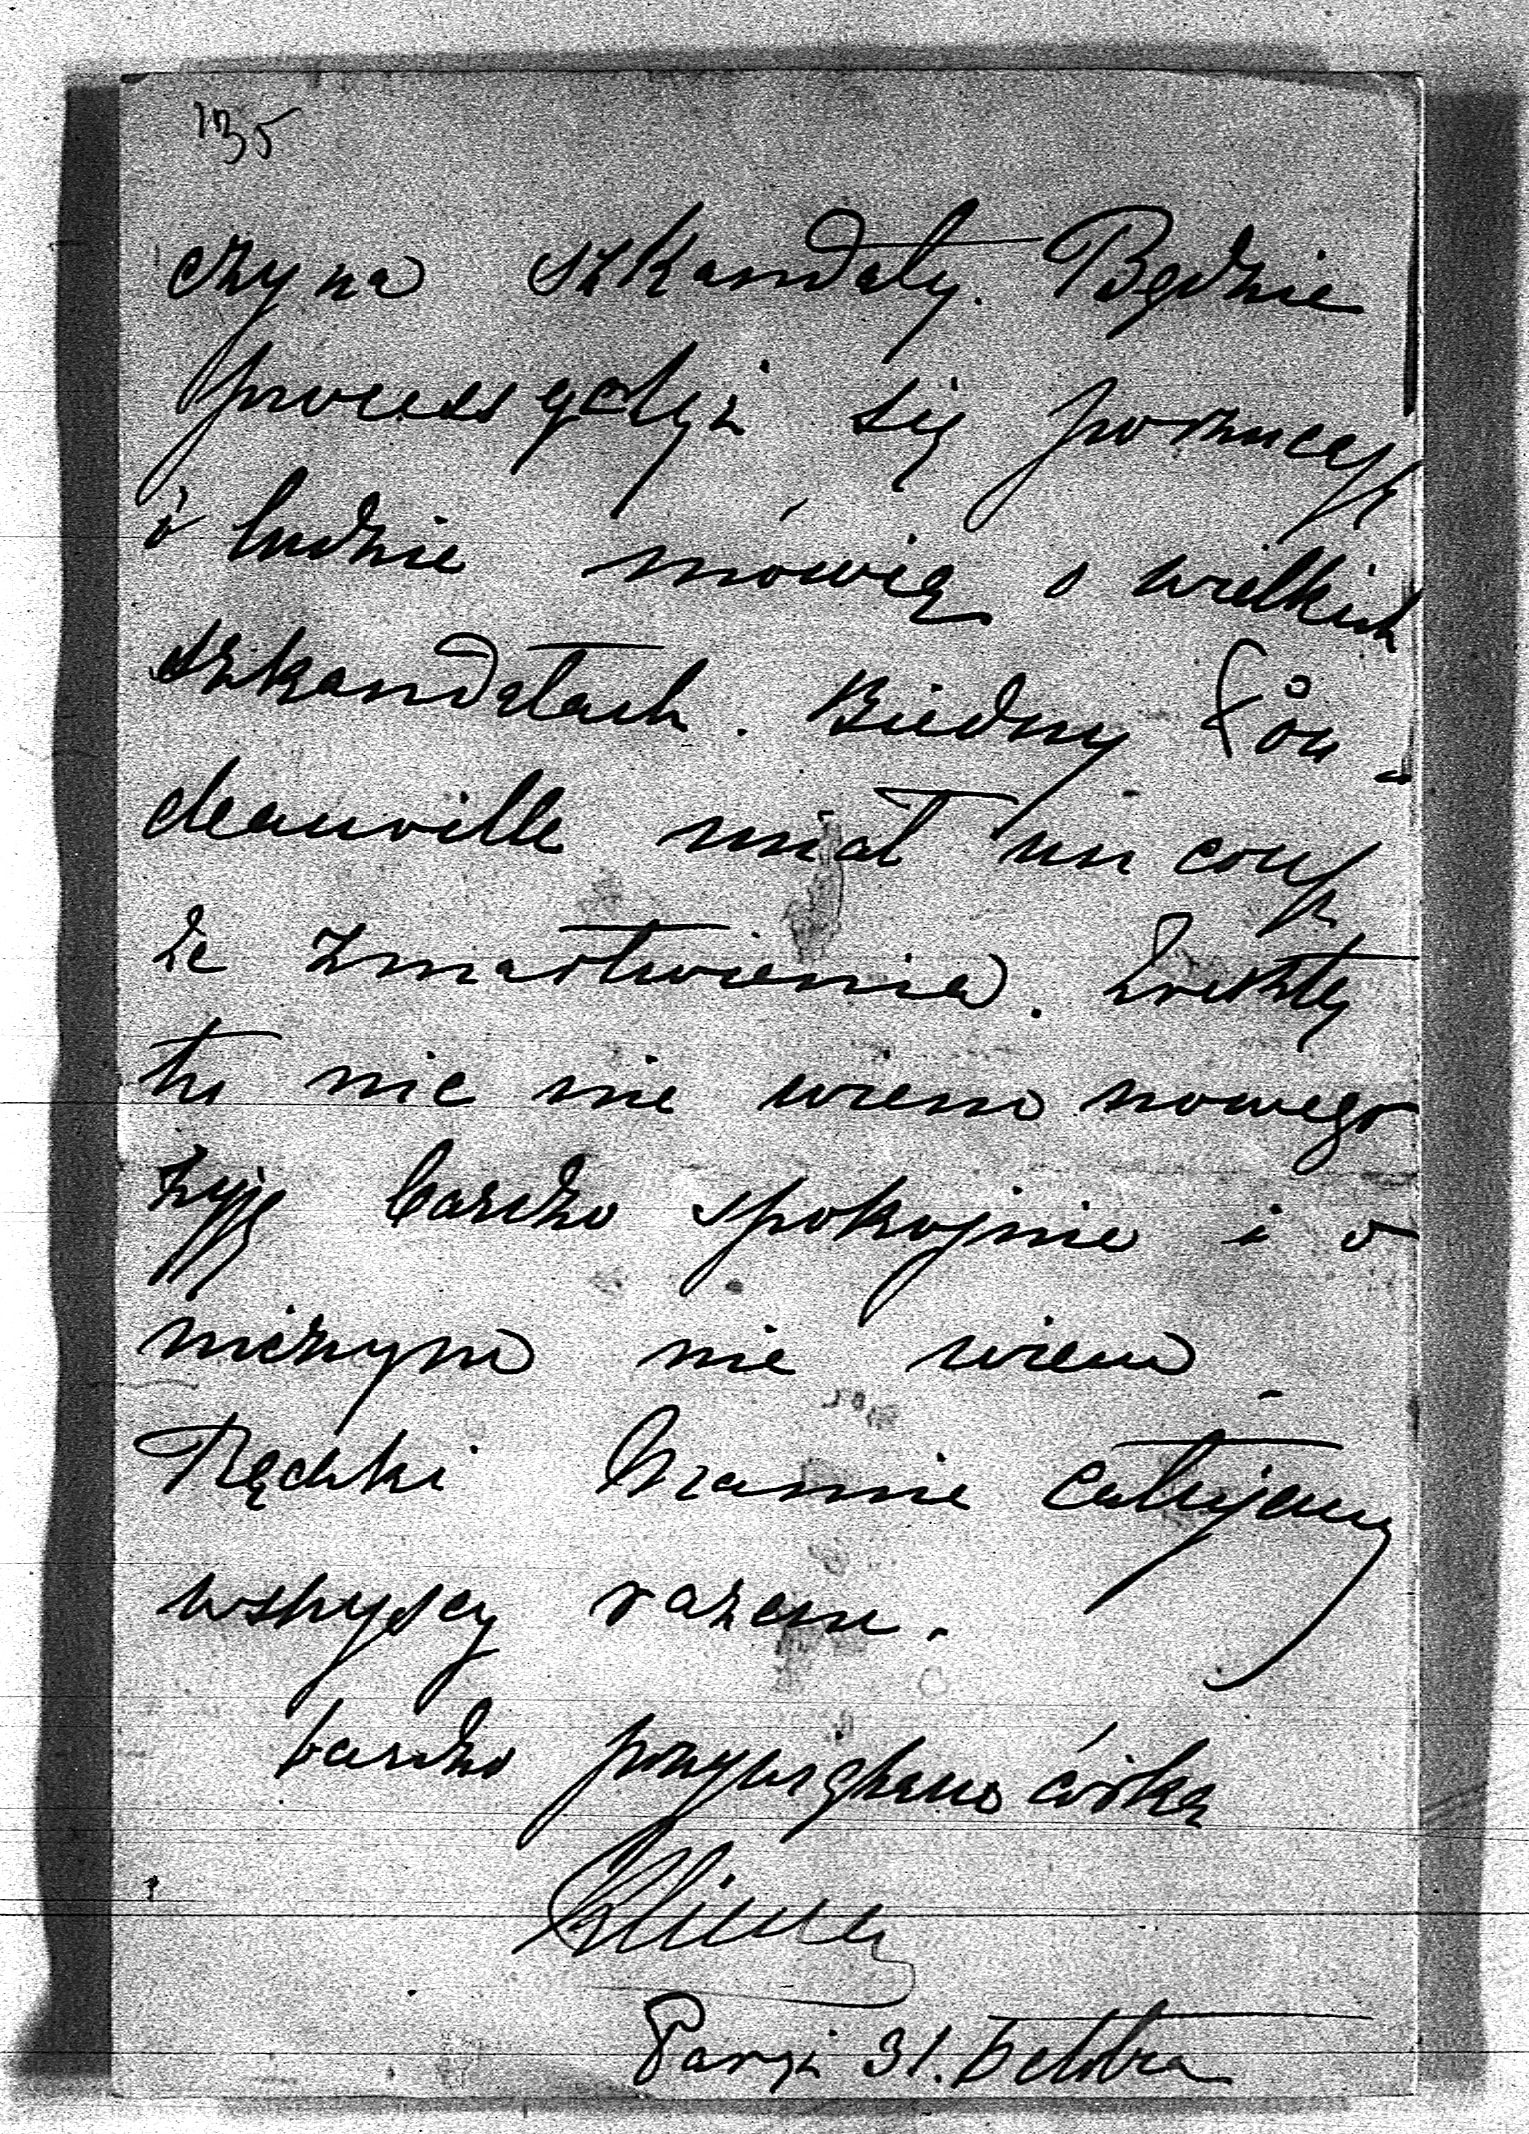 135
czyna szkandały. Będzie
process gdyż się porzucają
i ludzie mówią o wielkich
szkandałach. Biedny Lou-
deauville miał un coup
ze zmartwienia. Zresztą
tu nic nie wiem nowego
żyję bardzo spokojnie i o
niczym nie wiem.
Rączki Mamie całujemy
wszyscy razem.
bardzo przywiązana córka
Paryż 31. Octobra